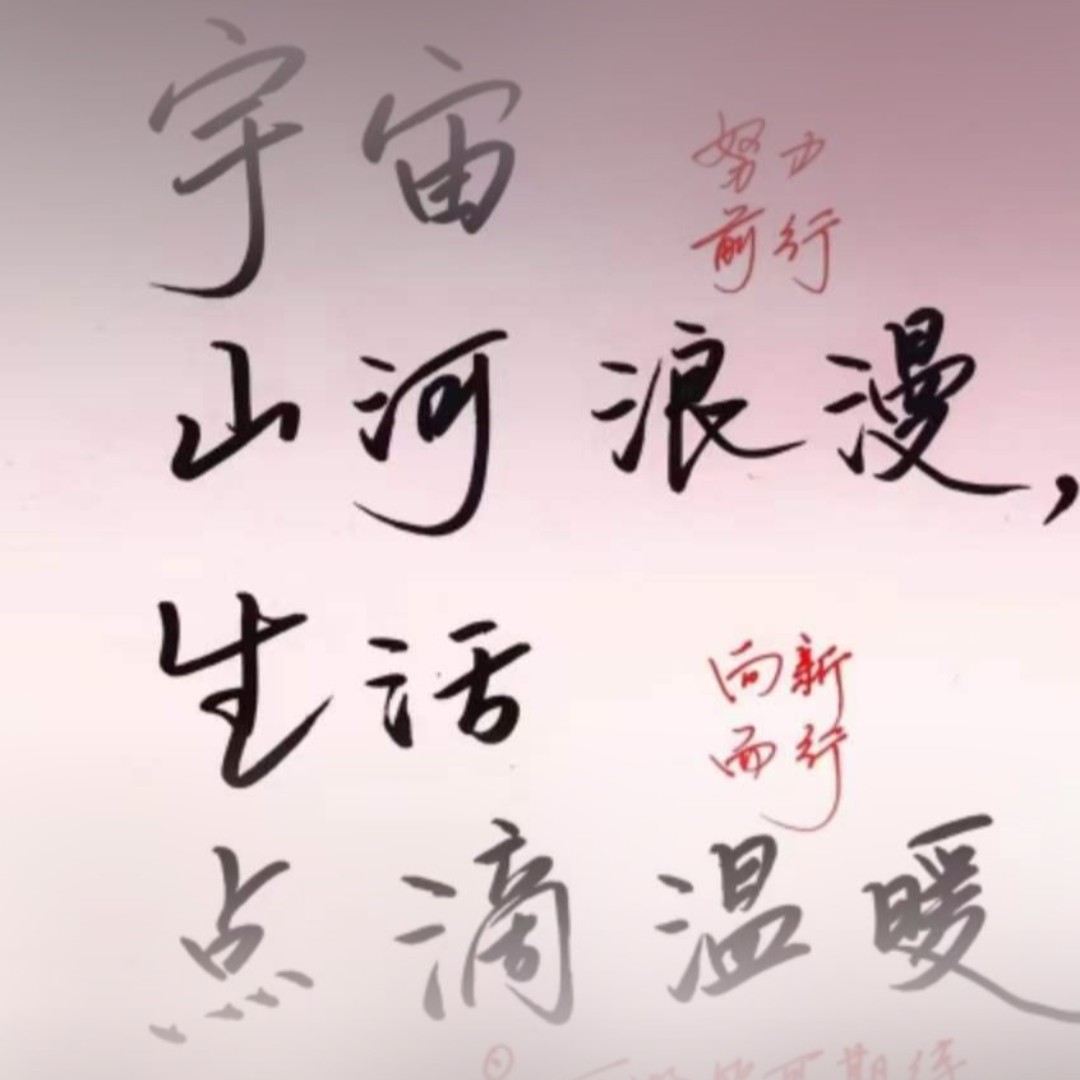 宇宙
努力
前行
山河浪漫,
生活
向新
而行
点滴温暖
期待